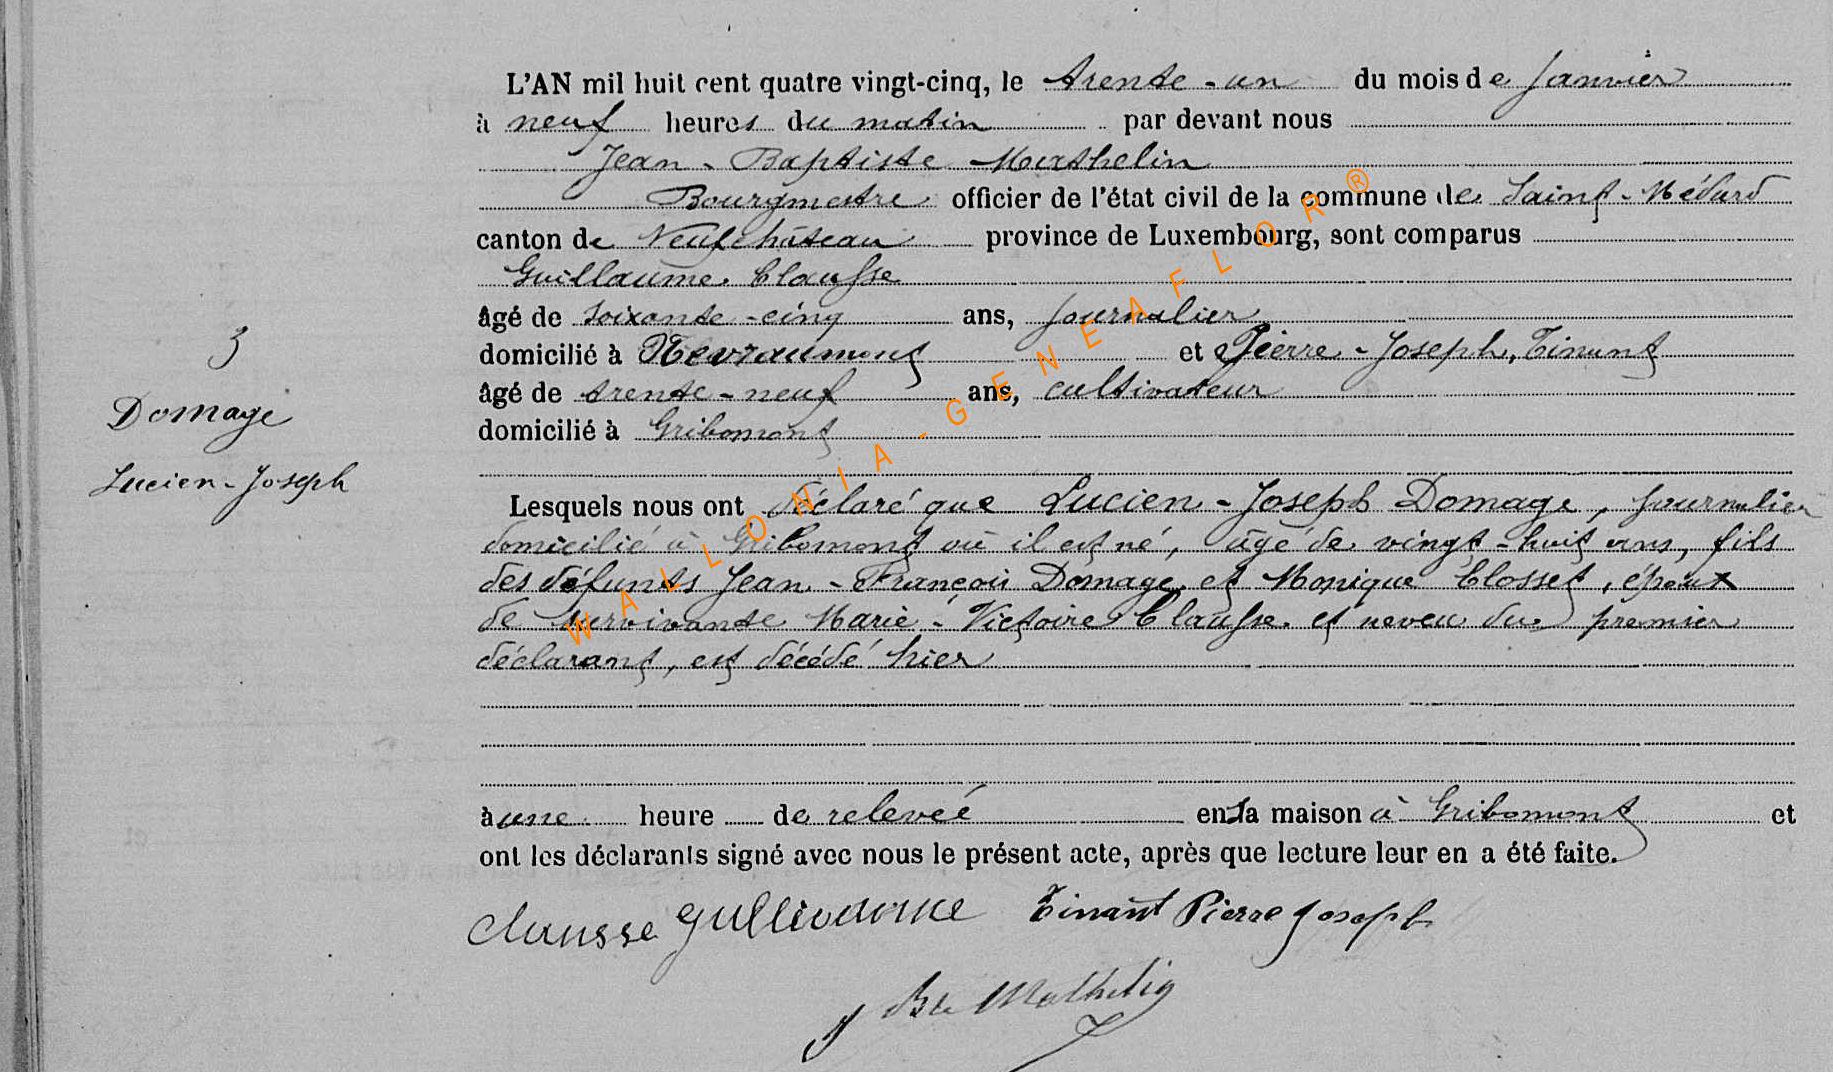 L'AN mil huit cent quatre vingt-cinq, le trente-un du mois de Janvier
à neuf heures du matin par devant nous
Jean-Baptiste Mathelin
Bourgmestre officier de l'état civil de la commune de Saint-Médard
canton de Neufchâteau province de Luxembourg, sont comparus
Guillaume Clausse
âgé de soixante-cinq ans, journalier
domicilié à Nevraumont et Pierre-Joseph, Tinant
âgé de trente-neuf ans, cultivateur
domicilié à Gribomont
3
Domage
Lucien-Joseph
Lesquels nous ont déclaré que Lucien-Joseph Domage, journalier
domicilié à Gribomont où il est né, âgé de vingt-huit ans, fils
des défunts Jean-François Domage, et Monique Closset, époux
de survivante Marie-Victoire Clausse et neveu du premier
déclarant, est décédé hier
à une heure de relevée en sa maison à Gribomont et
ont les déclarants signé avec nous le présent acte, après que lecture leur en a été faite.
Clausse Tinant Pierre Joseph
J Bte Mathelin
WALLONIA-GENEAFLOR®